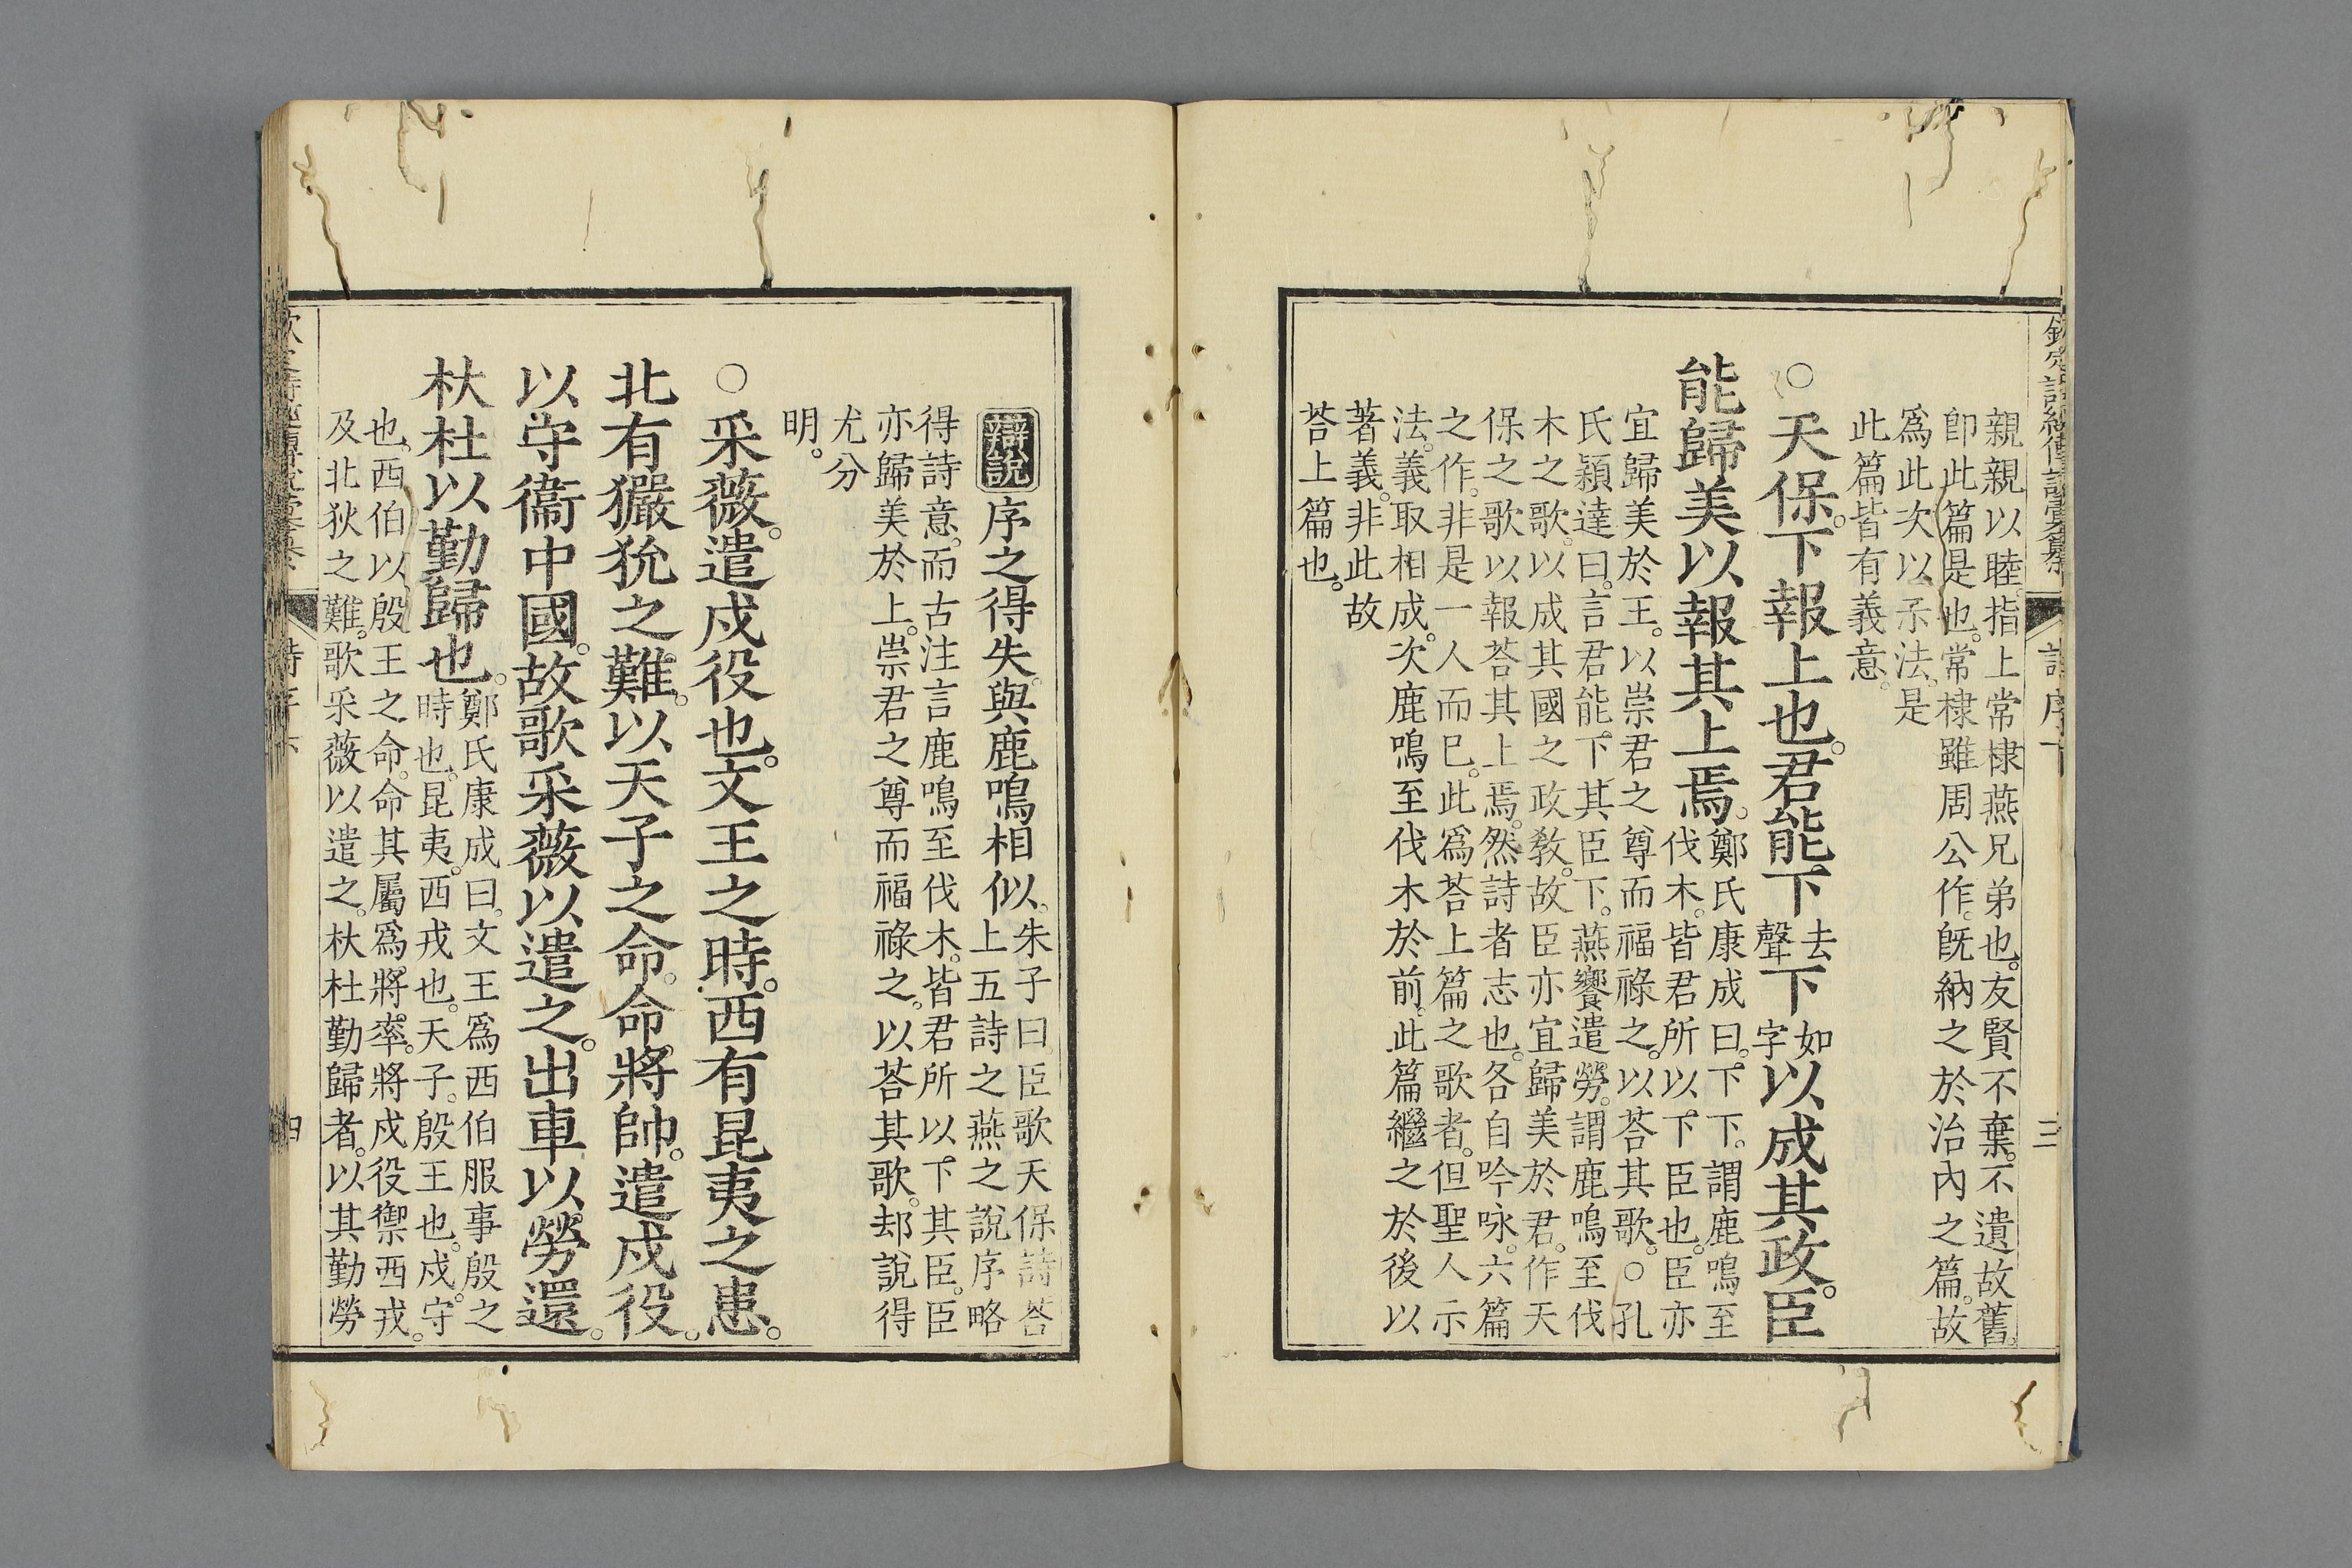 欽定詩經傳說彙纂
詩序下
三
親親以睦指上常棣燕兄弟也友賢不棄不遺故舊
卽此篇是也常棣雖周公作旣納之於治內之篇故
爲此次以示法是
此篇皆有義意
○天保下報上也君能下去聲下如字以成其政臣
能歸美以報其上焉鄭氏康成曰下下謂鹿鳴至
伐木皆君所以下臣也臣亦
宜歸美於王以崇君之尊而福祿之以荅其歌○孔
氏穎達曰言君能下其臣下燕饗遣勞謂鹿鳴至伐
木之歌以成其國之政敎故臣亦宜歸美於君作天
保之歌以報荅其上焉然詩者志也各自吟咏六篇
之作非是一人而已此爲荅上篇之歌者但聖人示
法義取相成次鹿鳴至伐木於前此篇繼之於後以
著義非此故
荅上篇也
辯說序之得失與鹿鳴相似朱子曰臣歌天保詩荅
上五詩之燕之說序略
得詩意而古注言鹿鳴至伐木皆君所以下其臣臣
亦歸美於上崇君之尊而福祿之以荅其歌却說得
尤分
明
○采薇遣戍役也文王之時西有昆夷之患
北有玁狁之難以天子之命命將帥遣戍役
以守衞中國故歌采薇以遣之出車以勞還
杕杜以勤歸也鄭氏康成曰文王爲西伯服事殷之
時也昆夷西戎也天子殷王也戍守
也西伯以殷王之命命其屬爲將率將戍役禦西戎
及北狄之難歌采薇以遣之杕杜勤歸者以其勤勞
四